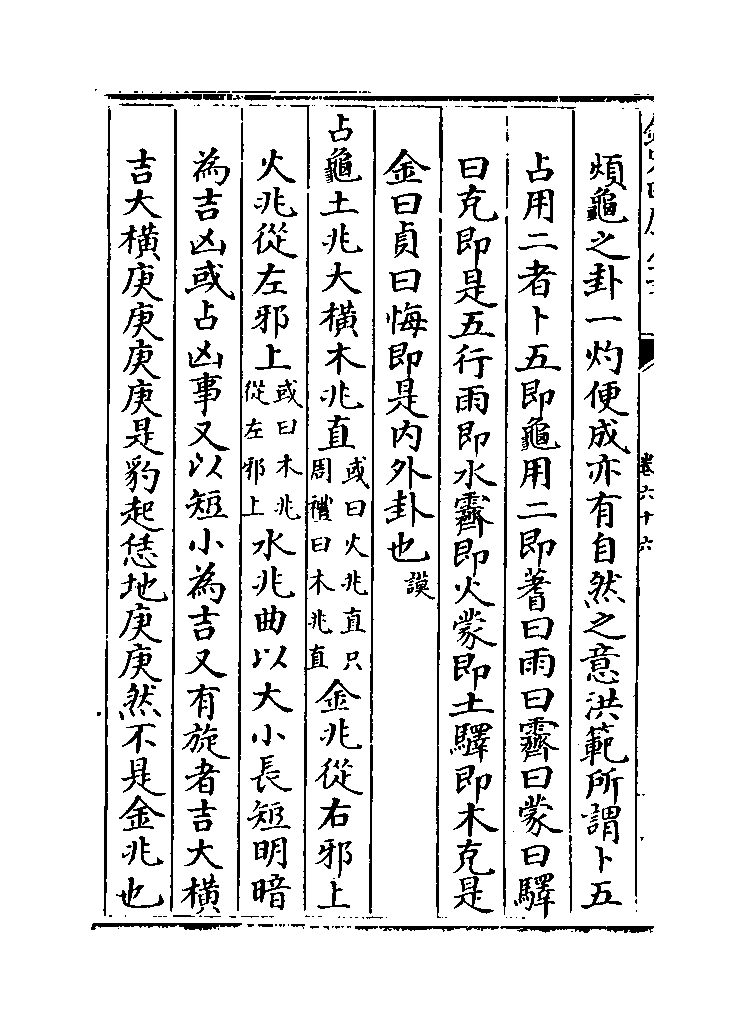 煩龜之卦一灼便成亦有自然之意洪範所謂卜五
占用二者卜五即龜用二即蓍曰雨曰霽曰蒙曰驛
曰克即是五行雨即水霽即火蒙即土驛即木克是
金曰貞曰悔即是内外卦也謨
占龜土兆大橫木兆直或曰火兆直只周禮曰木兆直金兆從右邪上
火兆從左邪上或曰木兆從左邪上水兆曲以大小長短明暗
為吉凶或占凶事又以短小為吉又有旋者吉大橫
吉大橫庚庚庚庚是豹起恁地庚庚然不是金兆也
卷六十六